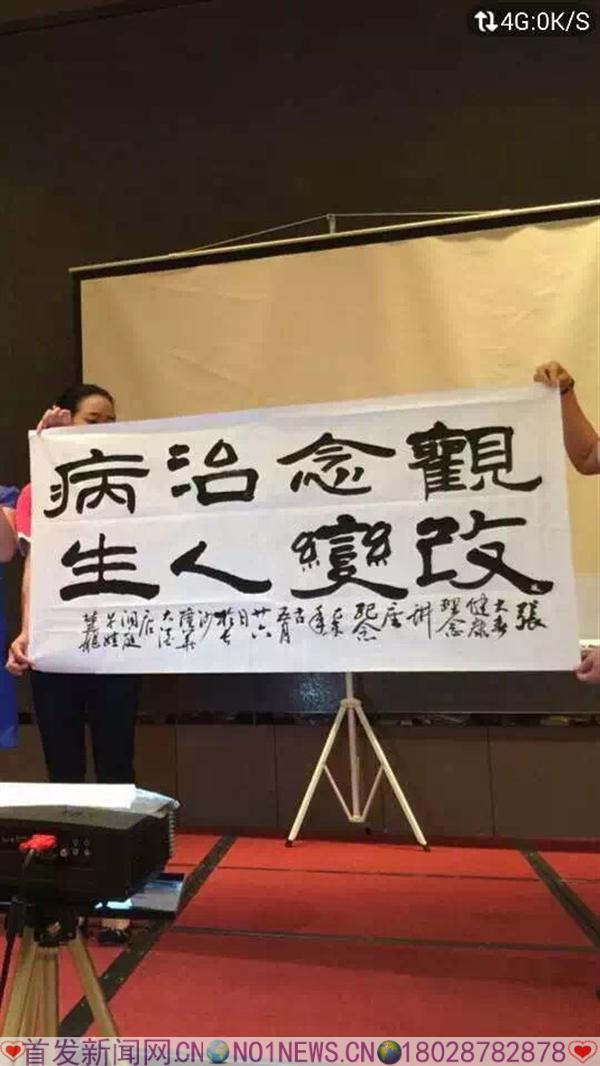 4G:0K/S
觀念治病
改變人生
張大春健康理念讲座紀念乙未年五月廿六日於長沙隆華大酒店洞庭牛娃
首发新闻网.CN NO1NEWS.CN 18028782878